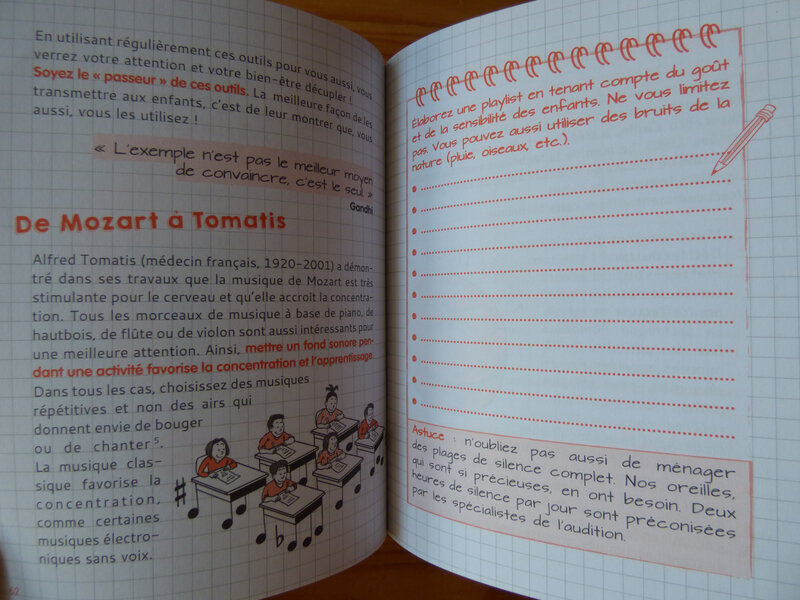 En utilisant régulièrement ces outils pour vous aussi, vous
verrez votre attention et votre bien-être décupler !
Soyez le « passeur » de ces outils. La meilleure façon de les
transmettre aux enfants, c'est de leur montrer que, vous
aussi, vous les utilisez !
« L'exemple n'est pas le meilleur moyen
de convaincre, c'est le seul. »
Gandhi
De Mozart à Tomatis
Alfred Tomatis (médecin français, 1920-2001) a démon-
tré dans ses travaux que la musique de Mozart est très
stimulante pour le cerveau et qu'elle accroît la concentra-
tion. Tous les morceaux de musique à base de piano, de
hautbois, de flûte ou de violon sont aussi intéressants pour
une meilleure attention. Ainsi, mettre un fond sonore pen-
dant une activité favorise la concentration et l'apprentissage.
Dans tous les cas, choisissez des musiques
répétitives et non des airs qui
donnent envie de bouger
ou de chanter⁵.
La musique clas-
sique favorise la
concentration,
comme certaines
musiques électro-
niques sans voix.
62
Élaborez une playlist en tenant compte du goût
et de la sensibilité des enfants. Ne vous limitez
pas. Vous pouvez aussi utiliser des bruits de la
nature (pluie, oiseaux, etc.).
Astuce : n'oubliez pas aussi de ménager
des plages de silence complet. Nos oreilles,
qui sont si précieuses, en ont besoin. Deux
heures de silence par jour sont préconisées
par les spécialistes de l'audition.